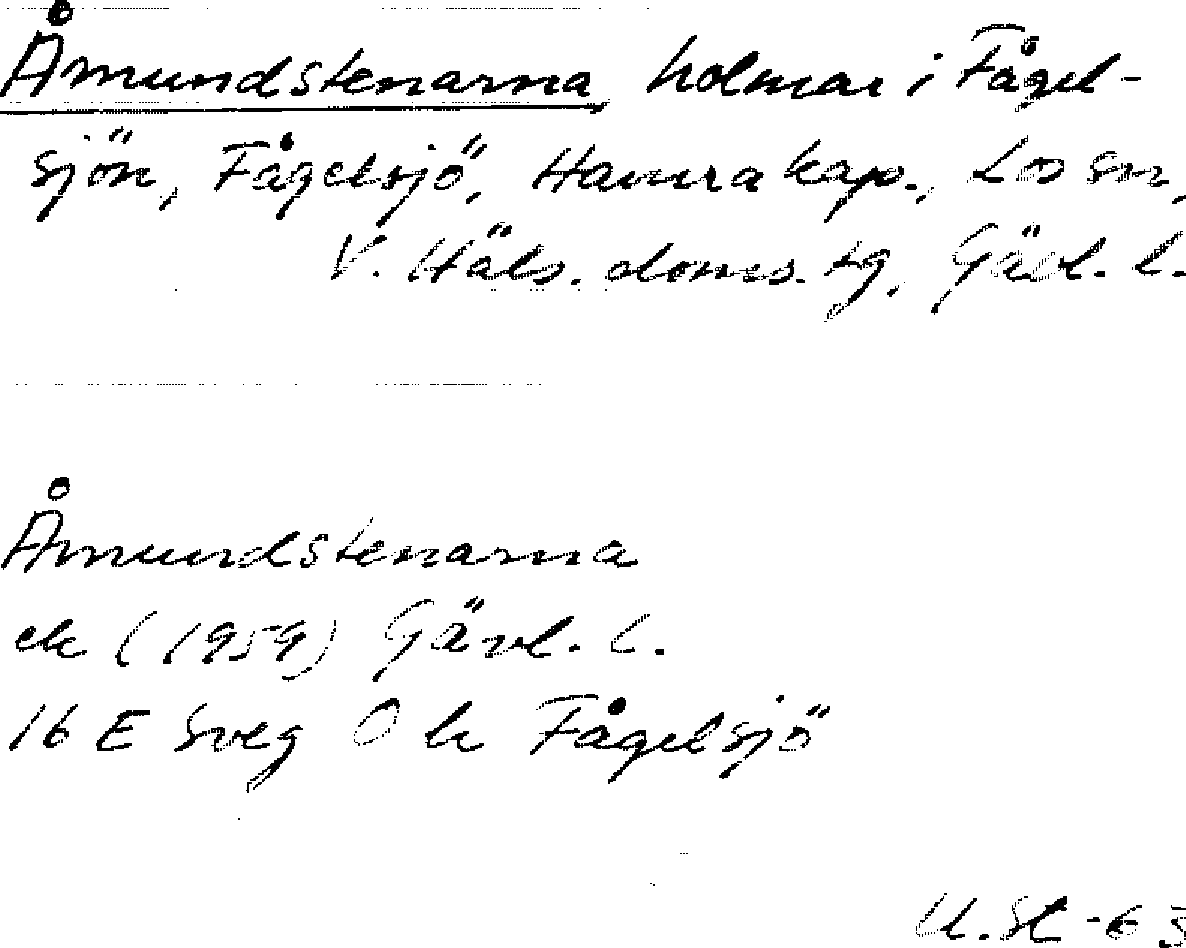 Åmundstenarna, holmar i Fågel-
sjön, Fågelsjö, Hamra kap., Los sn,
V. Häls. doms. tg, Gävl. l.
Åmundstenarna
ek (1959) Gävl. l.
16 E Sveg 0 h Fågelsjö
U. St -63